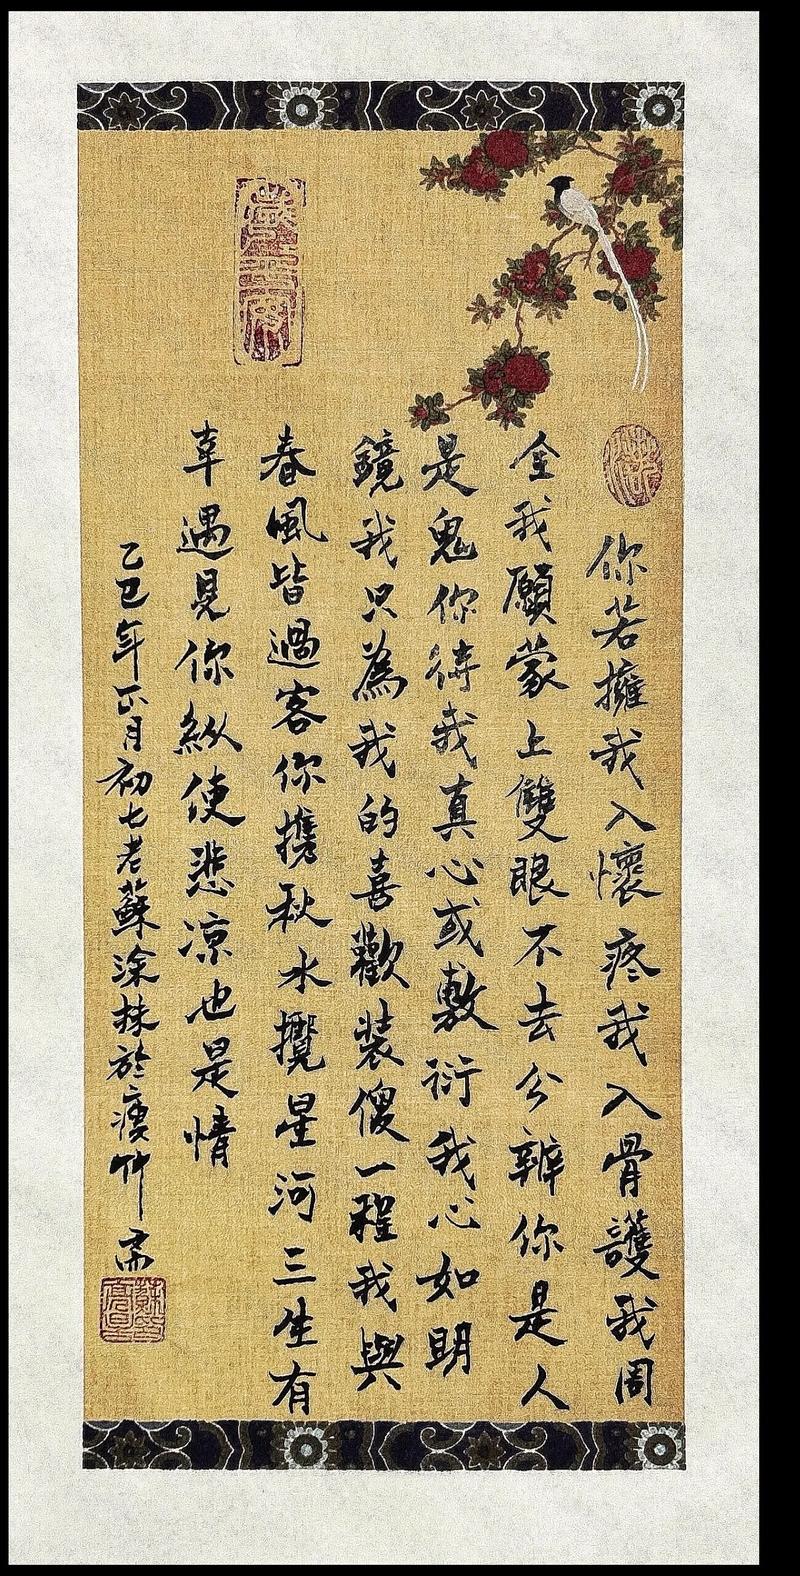 你若擁我入懷疼我入骨護我周
全我願蒙上雙眼不去分辨你是人
是鬼你待我真心或敷衍我心如明
鏡我只為我的喜歡裝傻一程我與
春風皆過客你攜秋水攬星河三生有
幸遇見你縱使悲涼也是情
乙巳年正月初七老蘇塗抹於瘦竹齋